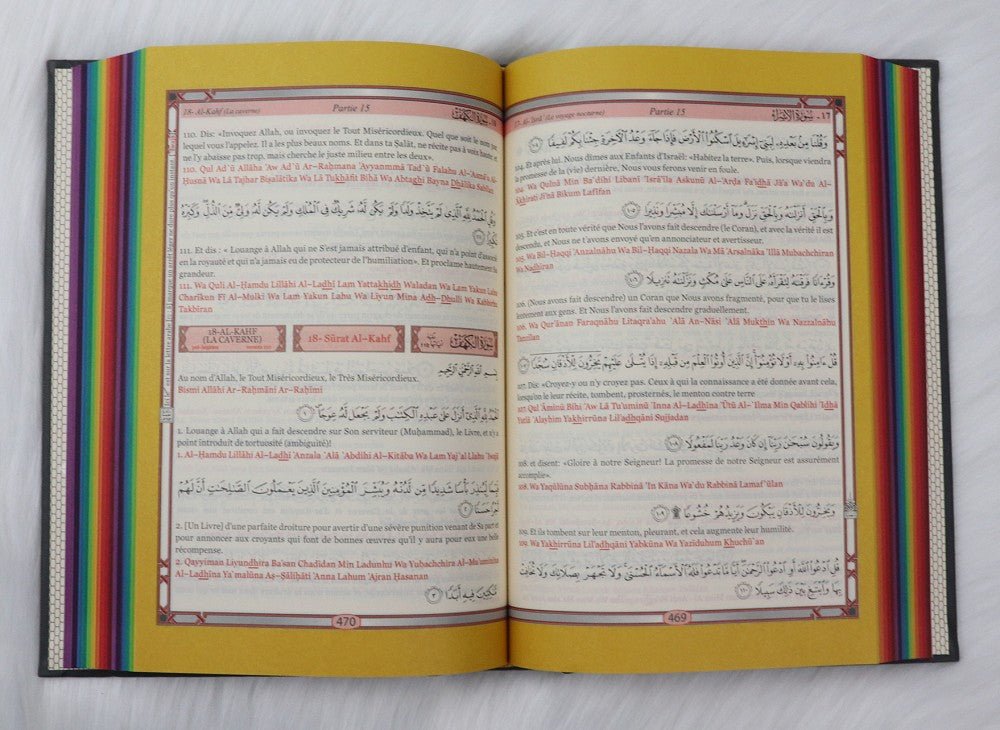 17- Al- 'Isrā' (Le voyage nocturne) Partie 15 ١٧ - سورة الإسراء
وَقُلْنَا مِنۢ بَعْدِهِۦ لِبَنِىٓ إِسْرَٰٓءِيلَ ٱسْكُنُوا۟ ٱلْأَرْضَ فَإِذَا جَآءَ وَعْدُ ٱلْـَٔاخِرَةِ جِئْنَا بِكُمْ لَفِيفًا ١٠٤
104. Et après lui. Nous dîmes aux Enfants d'Israël: «Habitez la terre». Puis, lorsque viendra
la promesse de la (vie) dernière, Nous vous ferons venir en foule.
104. Wa Qulnā Min Ba`dihi Libanī 'Isrā'īla Askunū Al-'Arđa Fa'idhā Jā'a Wa`du Al-
'Ākhirati Ji'nā Bikum Lafīfan
وَبِٱلْحَقِّ أَنزَلْنَٰهُ وَبِٱلْحَقِّ نَزَلَ وَمَآ أَرْسَلْنَٰكَ إِلَّا مُبَشِّرًا وَنَذِيرًا ١٠٥
105. Et c'est en toute vérité que Nous l'avons fait descendre (le Coran), et avec la vérité il est
descendu, et Nous ne t'avons envoyé qu'en annonciateur et avertisseur.
105. Wa Bil-Ĥaqqi Anzalnāhu Wa Bil-Ĥaqqi Nazala Wa Mā 'Arsalnāka 'Illā Mubachchiran
Wa Nadhīran
وَقُرْءَانًا فَرَقْنَٰهُ لِتَقْرَأَهُۥ عَلَى ٱلنَّاسِ عَلَىٰ مُكْثٍ وَنَزَّلْنَٰهُ تَنزِيلًا ١٠٦
106. (Nous avons fait descendre) un Coran que Nous avons fragmenté, pour que tu le lises
lentement aux gens. Et Nous l'avons fait descendre graduellement.
106. Wa Qur'ānan Faraqnāhu Litaqra'ahu `Alá An-Nāsi `Alá Mukthin Wa Nazzalnāhu
Tanzīlan
قُلْ ءَامِنُوا۟ بِهِۦٓ أَوْ لَا تُؤْمِنُوٓا۟ إِنَّ ٱلَّذِينَ أُوتُوا۟ ٱلْعِلْمَ مِن قَبْلِهِۦٓ إِذَا يُتْلَىٰ عَلَيْهِمْ يَخِرُّونَ لِلْأَذْقَانِ سُجَّدًا ١٠٧
107. Dis: «Croyez-y ou n'y croyez pas. Ceux à qui la connaissance a été donnée avant cela,
lorsqu'on le leur récite, tombent, prosternés, le menton contre terre
107. Qul 'Āminū Bihi 'Aw Lā Tu'uminū 'Inna Al-Ladhīna 'Ūtū Al-`Ilma Min Qablihi 'Idhā
Yutlá `Alayhim Yakhirrūna Lil'adhqāni Sujjadan
وَيَقُولُونَ سُبْحَٰنَ رَبِّنَآ إِن كَانَ وَعْدُ رَبِّنَا لَمَفْعُولًا ١٠٨
108. et disent: «Gloire à notre Seigneur! La promesse de notre Seigneur est assurément
accomplie».
108. Wa Yaqūlūna Subĥāna Rabbinā 'In Kāna Wa`du Rabbinā Lamaf`ūlan
وَيَخِرُّونَ لِلْأَذْقَانِ يَبْكُونَ وَيَزِيدُهُمْ خُشُوعًا ۩ ١٠٩
109. Et ils tombent sur leur menton, pleurant, et cela augmente leur humilité.
109. Wa Yakhirrūna Lil'adhqāni Yabkūna Wa Yazīduhum Khuchū`an
قُلِ ٱدْعُوا۟ ٱللَّهَ أَوِ ٱدْعُوا۟ ٱلرَّحْمَٰنَ أَيًّا مَّا تَدْعُوا۟ فَلَهُ ٱلْأَسْمَآءُ ٱلْحُسْنَىٰ وَلَا تَجْهَرْ بِصَلَاتِكَ وَلَا تُخَافِتْ
بِهَا وَٱبْتَغِ بَيْنَ ذَٰلِكَ سَبِيلًا ١١٠
469
18- Al-Kahf (La caverne) Partie 15 ١٨ - سورة الكهف
110. Dis: «Invoquez Allah, ou invoquez le Tout Miséricordieux. Quel que soit le nom par
lequel vous l'appelez. Il a les plus beaux noms. Et dans ta Şalāt, ne récite pas à voix haute; et
ne l'y abaisse pas trop, mais cherche le juste milieu entre les deux».
110. Qul Ad`ū Allāha 'Aw Ad`ū Ar-Raĥmana 'Ayyanmmā Tad`ū Falahu Al-'Asmā'u Al-
Ĥusná Wa Lā Tajhar Bişalātika Wa Lā Tukhāfit Bihā Wa Abtaghi Bayna Dhālika Sabīlan
وَقُلِ ٱلْحَمْدُ لِلَّهِ ٱلَّذِى لَمْ يَتَّخِذْ وَلَدًا وَلَمْ يَكُن لَّهُۥ شَرِيكٌ فِى ٱلْمُلْكِ وَلَمْ يَكُن لَّهُۥ وَلِىٌّ مِّنَ ٱلذُّلِّ وَكَبِّرْهُ
تَكْبِيرًۢا ١١١
111. Et dis : « Louange à Allah qui ne S'est jamais attribué d'enfant, qui n'a point d'associé
en la royauté et qui n'a jamais eu de protecteur de l'humiliation». Et proclame hautement Sa
grandeur.
111. Wa Quli Al-Ĥamdu Lillāhi Al-Ladhī Lam Yattakhidh Waladan Wa Lam Yakun Lahu
Charīkun Fī Al-Mulki Wa Lam Yakun Lahu Wa Līyun Mina Adh-Dhulli Wa Kabbirhu
Takbīran
18-AL-KAHF
(LA CAVERNE)
pré-hégirien versets 110
18- Sūrat Al-Kahf
سورة الكهف
Au nom d'Allah, le Tout Miséricordieux, le Très Miséricordieux.
بِسْمِ ٱللَّهِ ٱلرَّحْمَٰنِ ٱلرَّحِيمِ
Bismi Allāhi Ar-Raĥmāni Ar-Raĥīmi
ٱلْحَمْدُ لِلَّهِ ٱلَّذِىٓ أَنزَلَ عَلَىٰ عَبْدِهِ ٱلْكِتَٰبَ وَلَمْ يَجْعَل لَّهُۥ عِوَجَا ١
1. Louange à Allah qui a fait descendre sur Son serviteur (Muĥammad), le Livre, et n'y a
point introduit de tortuosité (ambiguïté)!
1. Al-Ĥamdu Lillāhi Al-Ladhī 'Anzala `Alá `Abdihi Al-Kitāba Wa Lam Yaj`al Lahu `Iwajā
قَيِّمًا لِّيُنذِرَ بَأْسًا شَدِيدًا مِّن لَّدُنْهُ وَيُبَشِّرَ ٱلْمُؤْمِنِينَ ٱلَّذِينَ يَعْمَلُونَ ٱلصَّٰلِحَٰتِ أَنَّ لَهُمْ
أَجْرًا حَسَنًا ٢
2. [Un Livre] d'une parfaite droiture pour avertir d'une sévère punition venant de Sa part et
pour annoncer aux croyants qui font de bonnes œuvres qu'il y aura pour eux une belle
récompense.
2. Qayyiman Liyundhira Ba'san Chadīdan Min Ladunhu Wa Yubachchira Al-Mu'uminīna
Al-Ladhīna Ya`malūna Aş-Şāliĥāti 'Anna Lahum 'Ajran Ĥasanan
مَّٰكِثِينَ فِيهِ أَبَدًا ٣
470